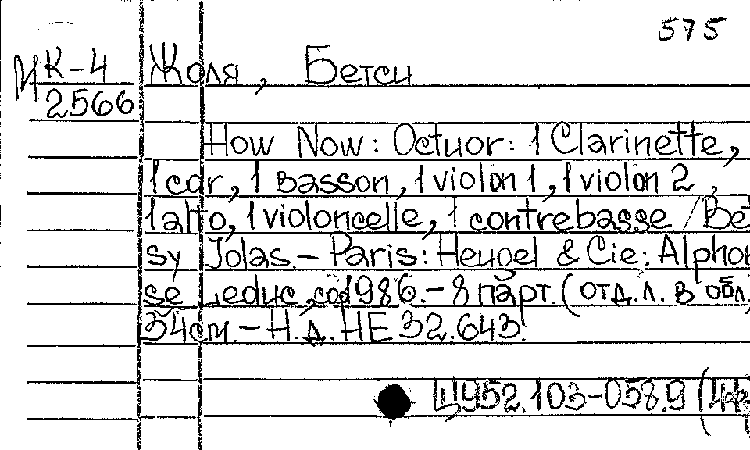 575
К-4 Жоля, Бетси
2566
How Now: Octuor: 1 Clarinette,
1 cor, 1 basson, 1 violon 1, 1 violon 2,
1 alto, 1 violoncelle, 1 contrebasse / Bet
sy Jolas. - Paris: Heugel & Cie; Alphon
se Leduc, cop 1986. - 8 парт. (отд. л. в обл.
34см. - Н.д. HE 32.643.
Ц952.103-058.9 (4Ф